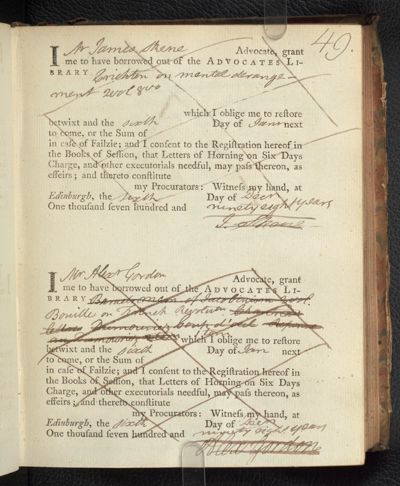 49.
I Mr James Skene Advocate, grant
me to have borrowed out of the ADVOCATES LI-
BRARY Crichton on mental derange-
ment 2 vol 8vo
which I oblige me to reſtore
betwixt and the sixth Day of Janr next
to come, or the Sum of
in caſe of Failzie; and I conſent to the Regiſtration hereof in
the Books of Seſſion, that Letters of Horning on Six Days
Charge, and other executorials needful, may paſs thereon, as
effeirs; and thereto conſtitute
my Procurators: Witneſs my hand, at
Edinburgh, the sixth Day of Decr
One thouſand ſeven hundred and ninety eight years
J. Skene
I Mr Alexr Gordon Advocate, grant
me to have borrowed out of the ADVOCATES LI-
BRARY of Jacobinism vol.
Bouille on French Revolution
which I oblige me to reſtore
betwixt and the sixth Day of Jan next
to come, or the Sum of
in caſe of Failzie; and I conſent to the Regiſtration hereof in
the Books of Seſſion, that Letters of Horning on Six Days
Charge, and other executorials needful, may paſs thereon, as
effeirs; and thereto conſtitute
my Procurators: Witneſs my hand, at
Edinburgh, the sixth Day of Decr
One thouſand ſeven hundred and ninety eight years
Alexr Gordon